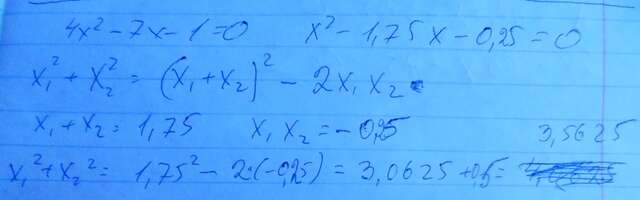 4x² - 7x - 1 = 0 x² - 1,75x - 0,25 = 0
x₁² + x₂² = (x₁ + x₂)² - 2x₁x₂
x₁ + x₂ = 1,75 x₁x₂ = -0,25 3,5625
x₁² + x₂² = 1,75² - 2·(-0,25) = 3,0625 + 0,5 =